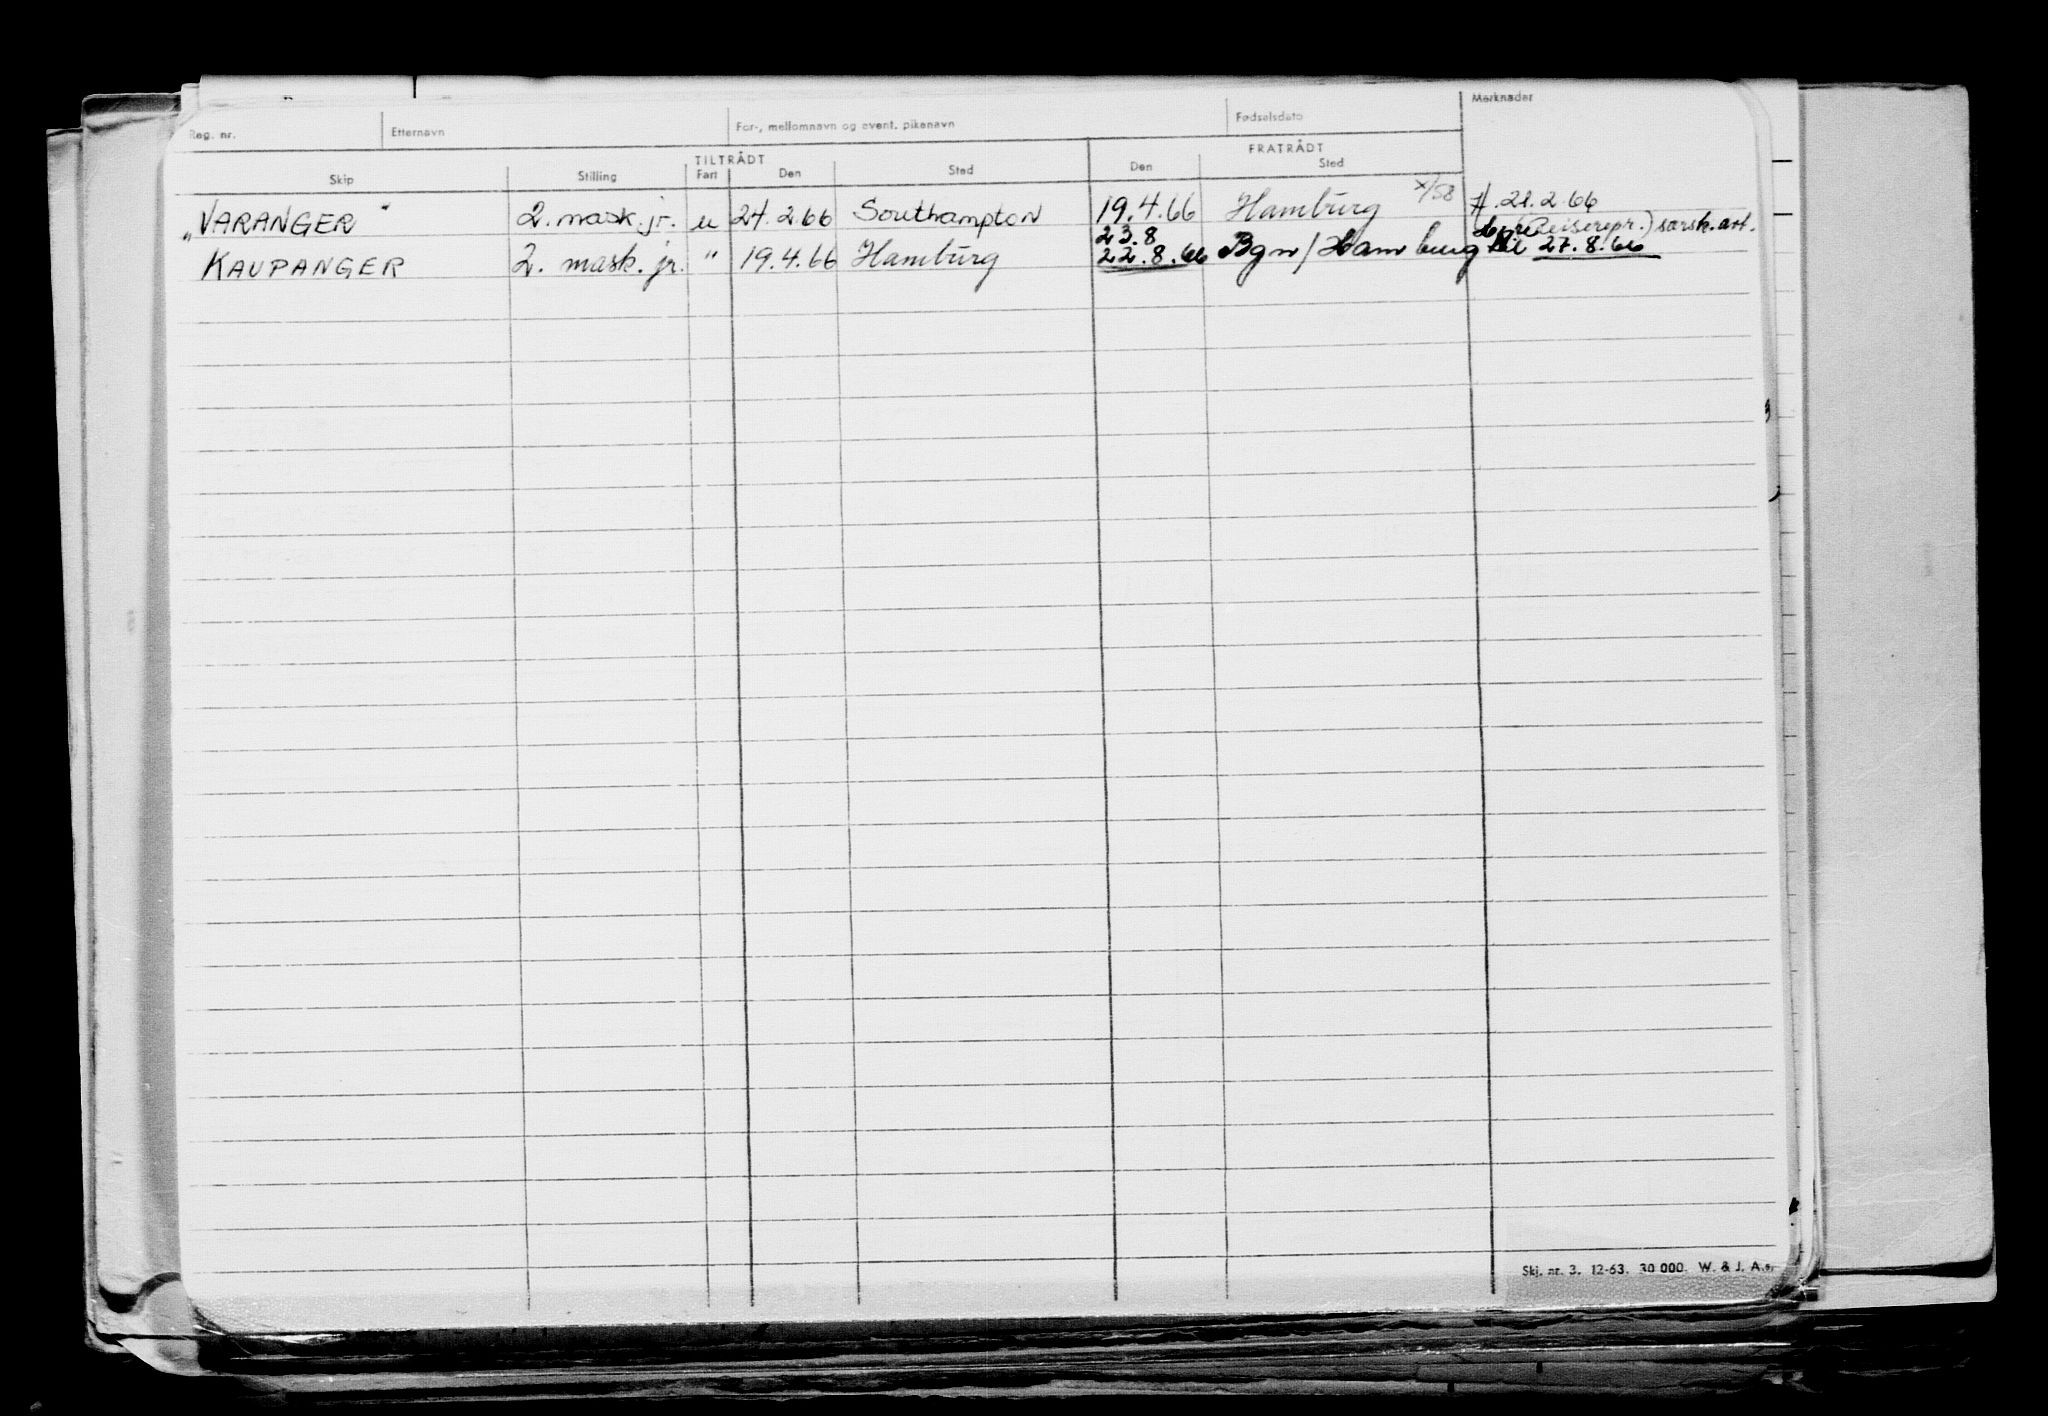 Reg. nr. Etternavn For-, mellomnavn og event. pikenavn Fødselsdato Merknader
TILTRÅDT FRATRÅDT
Skip Stilling Fart Den Sted Den Sted
„VARANGER" 2. mask. jr. u 24.2.66 Southampton 19.4.66 Hamburg x/58 21.2.66
23.8 (Reiserepr.) særsk. art.
KAUPANGER 2. mask. jr. " 19.4.66 Hamburg 22.8.66 Bgn/Hamburg til 27.8.66
Skj. nr. 3. 12-63. 30 000. W. & J. A.s.